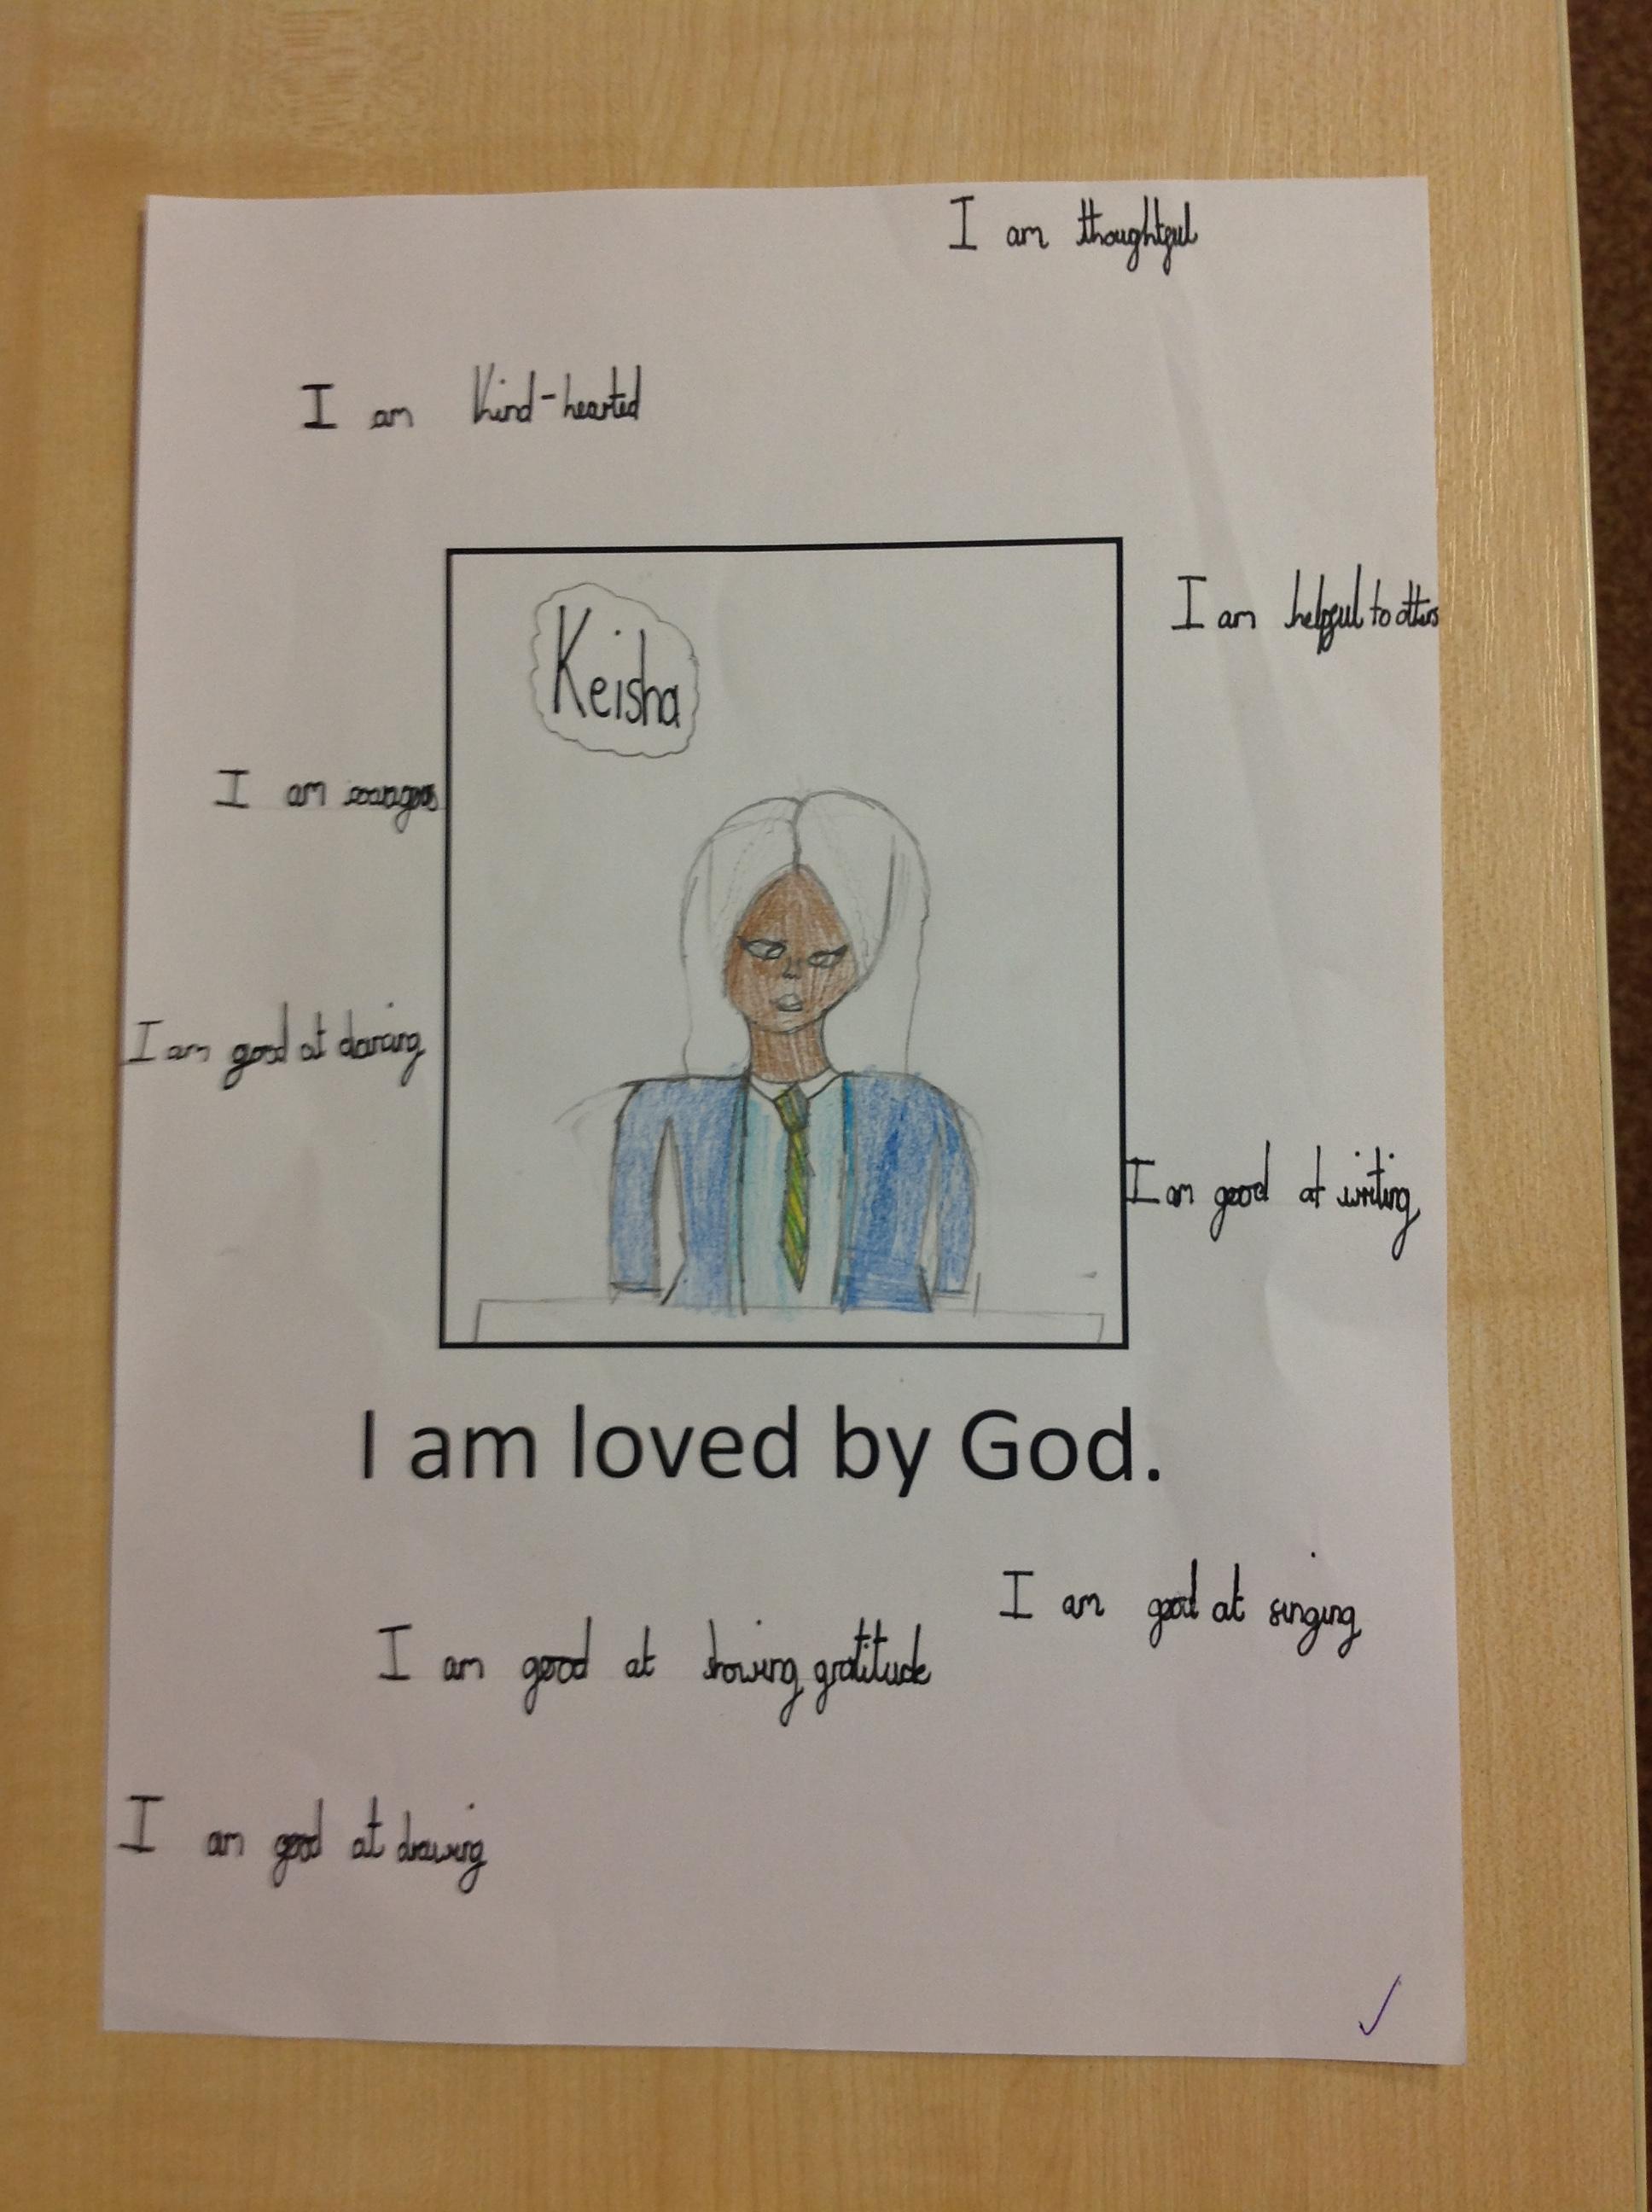 I am thoughtful
I am Kind-hearted
I am helpful to others
Keisha
I am
I am good at dancing
I am good at writing
I am loved by God.
I am good at singing
I am good at showing gratitude
I am good at drawing